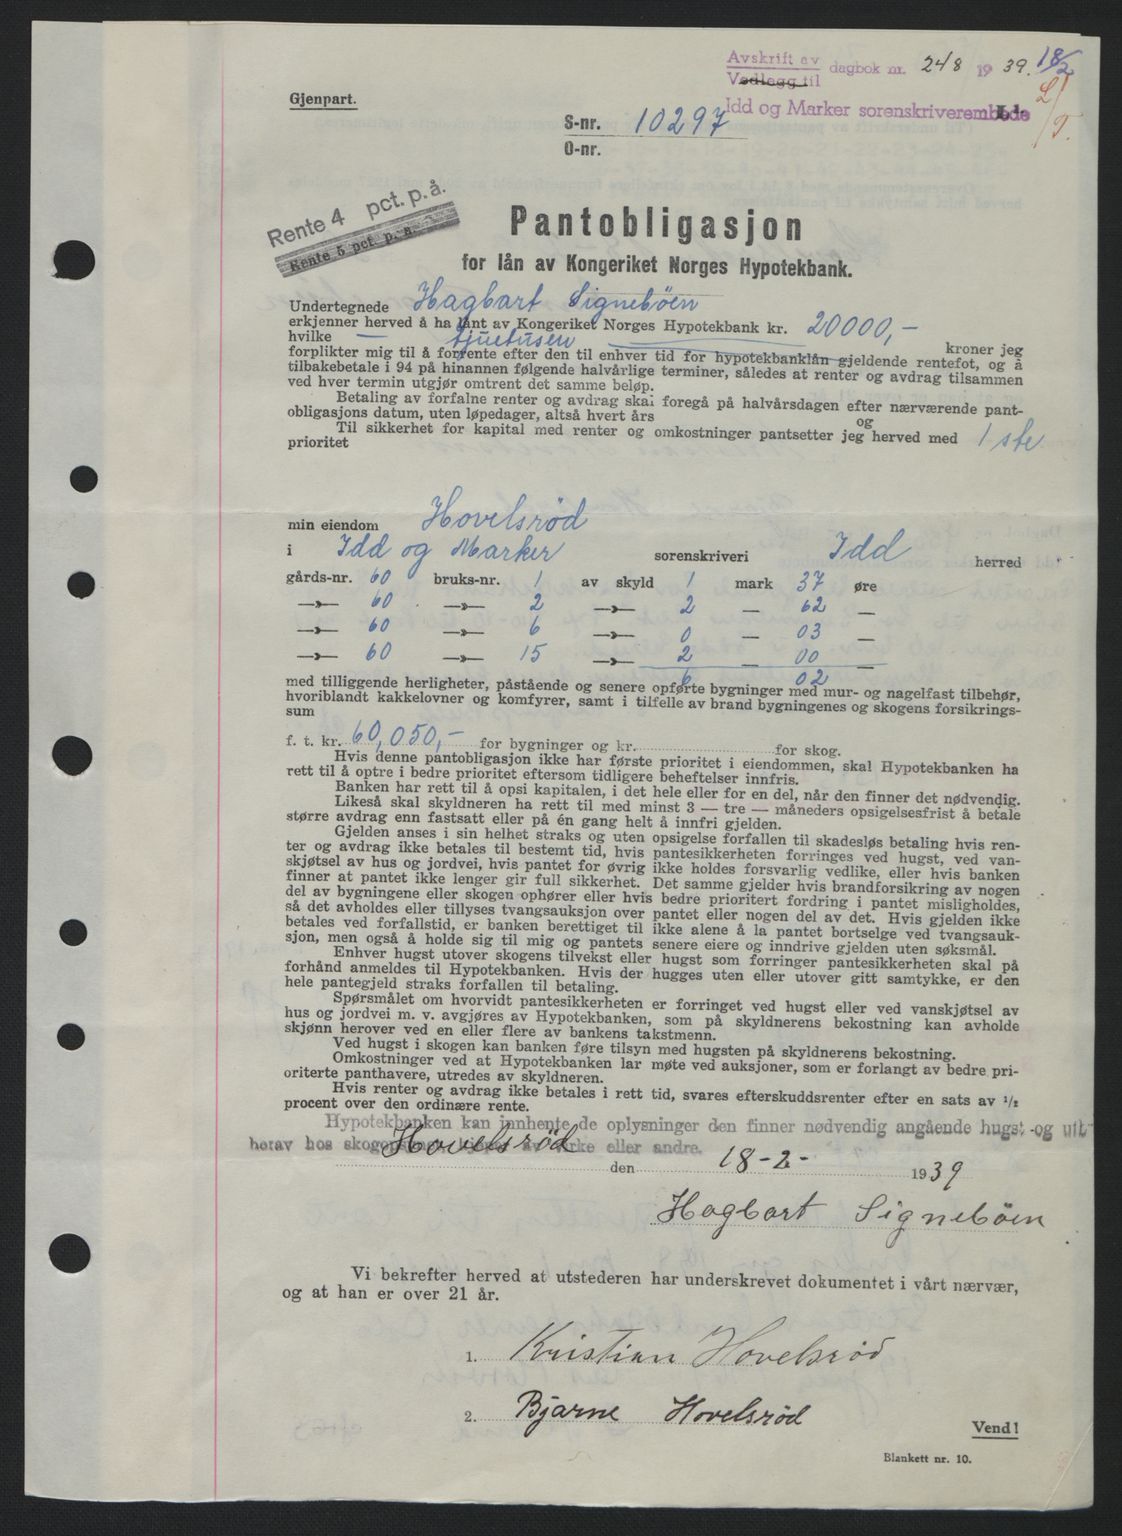 Avskrift av
Vedlegg til
dagbok nr. 248 1939. 18/2
Idd og Marker sorenskriverembede
Gjenpart.
S-nr. 10297
O-nr.
Rente 4 pct. p. å.
Rente 5 pct. p. å.
Pantobligasjon
for lån av Kongeriket Norges Hypotekbank.
Undertegnede Hagbart Signebøen
erkjenner herved å ha lånt av Kongeriket Norges Hypotekbank kr. 20000,-
hvilke — tjuetusen kroner jeg
forplikter mig til å forrente efter den til enhver tid for hypotekbanklån gjeldende rentefot, og å
tilbakebetale i 94 på hinannen følgende halvårlige terminer, således at renter og avdrag tilsammen
ved hver termin utgjør omtrent det samme beløp.
Betaling av forfalne renter og avdrag skal foregå på halvårsdagen efter nærværende pant-
obligasjons datum, uten løpedager, altså hvert års og
Til sikkerhet for kapital med renter og omkostninger pantsetter jeg herved med 1ste
prioritet
min eiendom Hovelsrød
i Idd og Marker sorenskriveri Idd herred
gårds-nr. 60 bruks-nr. 1 av skyld 1 mark 37 øre
—»— 60 —»— 2 —»— 2 — 62 —
—»— 60 —»— 6 —»— 0 — 03 —
—»— 60 —»— 15 —»— 2 — 00 —
6 02
med tilliggende herligheter, påstående og senere opførte bygninger med mur- og nagelfast tilbehør,
hvoriblandt kakkelovner og komfyrer, samt i tilfelle av brand bygningenes og skogens forsikrings-
sum
f. t. kr. 60,050,- for bygninger og kr. for skog.
Hvis denne pantobligasjon ikke har første prioritet i eiendommen, skal Hypotekbanken ha
rett til å optre i bedre prioritet eftersom tidligere beheftelser innfris.
Banken har rett til å opsi kapitalen, i det hele eller for en del, når den finner det nødvendig.
Likeså skal skyldneren ha rett til med minst 3 — tre — måneders opsigelsesfrist å betale
større avdrag enn fastsatt eller på én gang helt å innfri gjelden.
Gjelden anses i sin helhet straks og uten opsigelse forfallen til skadesløs betaling hvis ren-
ter og avdrag ikke betales til bestemt tid, hvis pantesikkerheten forringes ved hugst, ved van-
skjøtsel av hus og jordvei, hvis pantet for øvrig ikke holdes forsvarlig vedlike, eller hvis banken
finner at pantet ikke lenger gir full sikkerhet. Det samme gjelder hvis brandforsikring av nogen
del av bygningene eller skogen ophører eller hvis bedre prioritert fordring i pantet misligholdes,
så det avholdes eller tillyses tvangsauksjon over pantet eller nogen del av det. Hvis gjelden ikke
betales ved forfallstid, er banken berettiget til ikke alene å la pantet bortselge ved tvangsauk-
sjon, men også å holde sig til mig og pantets senere eiere og inndrive gjelden uten søksmål.
Enhver hugst utover skogens tilvekst eller hugst som forringer pantesikkerheten skal på
forhånd anmeldes til Hypotekbanken. Hvis der hugges uten eller utover gitt samtykke, er den
hele pantegjeld straks forfallen til betaling.
Spørsmålet om hvorvidt pantesikkerheten er forringet ved hugst eller ved vanskjøtsel av
hus og jordvei m. v. avgjøres av Hypotekbanken, som på skyldnerens bekostning kan avholde
skjønn herover ved en eller flere av bankens takstmenn.
Ved hugst i skogen kan banken føre tilsyn med hugsten på skyldnerens bekostning.
Omkostninger ved at Hypotekbanken lar møte ved auksjoner, som er forlangt av bedre pri-
oriterte panthavere, utredes av skyldneren.
Hvis renter og avdrag ikke betales i rett tid, svares efterskuddsrenter efter en sats av 1/2
procent over den ordinære rente.
Hypotekbanken kan innhente de oplysninger den finner nødvendig angående hugst og utt
herav hos eller andre.
Hovelsrød den 18-2- 1939
Hagbart Signebøen
Vi bekrefter herved at utstederen har underskrevet dokumentet i vårt nærvær,
og at han er over 21 år.
1. Kristian Hovelsrød
2. Bjarne Hovelsrød
Vend!
Blankett nr. 10.